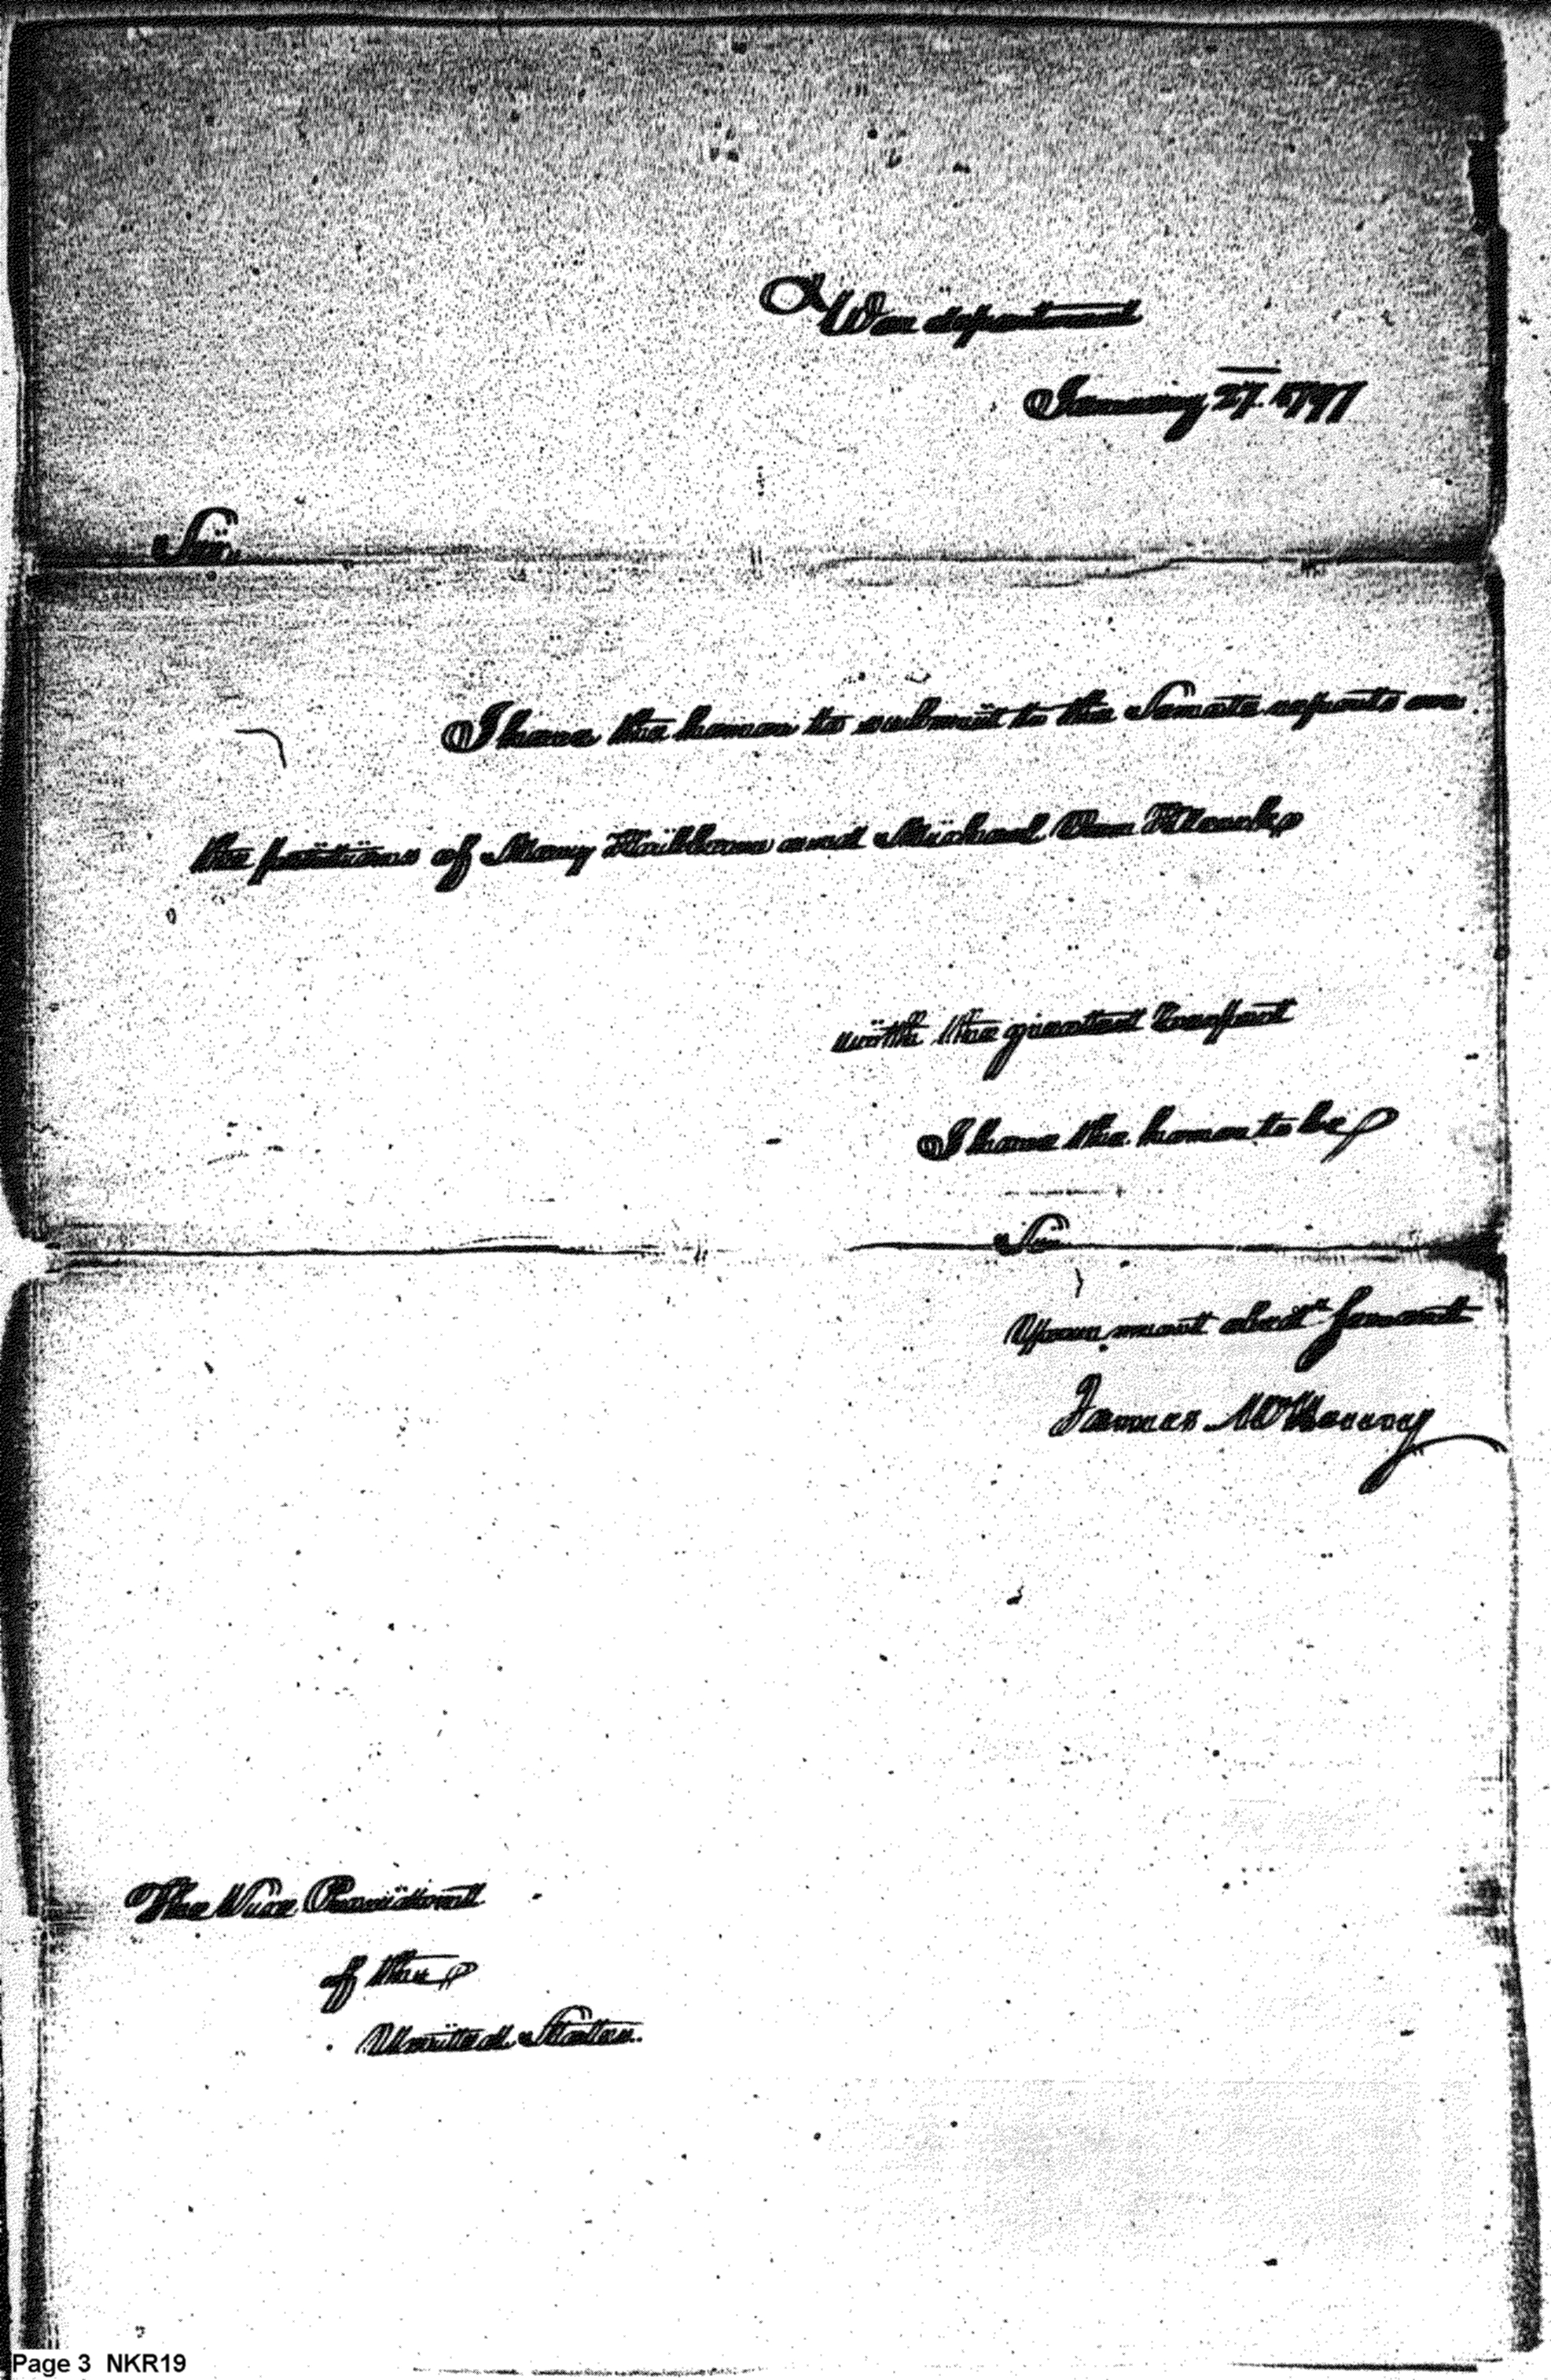 War department
January 27. 1797
Sir,
I have the honor to submit to the Senate reports on
the petitions of Mary and Michael Van Kleeck
with the greatest respect
I have the honor to be
Sir
Your most obedt servant
James McHenry
The Vice President
of the
United States.
Page 3 NKR19